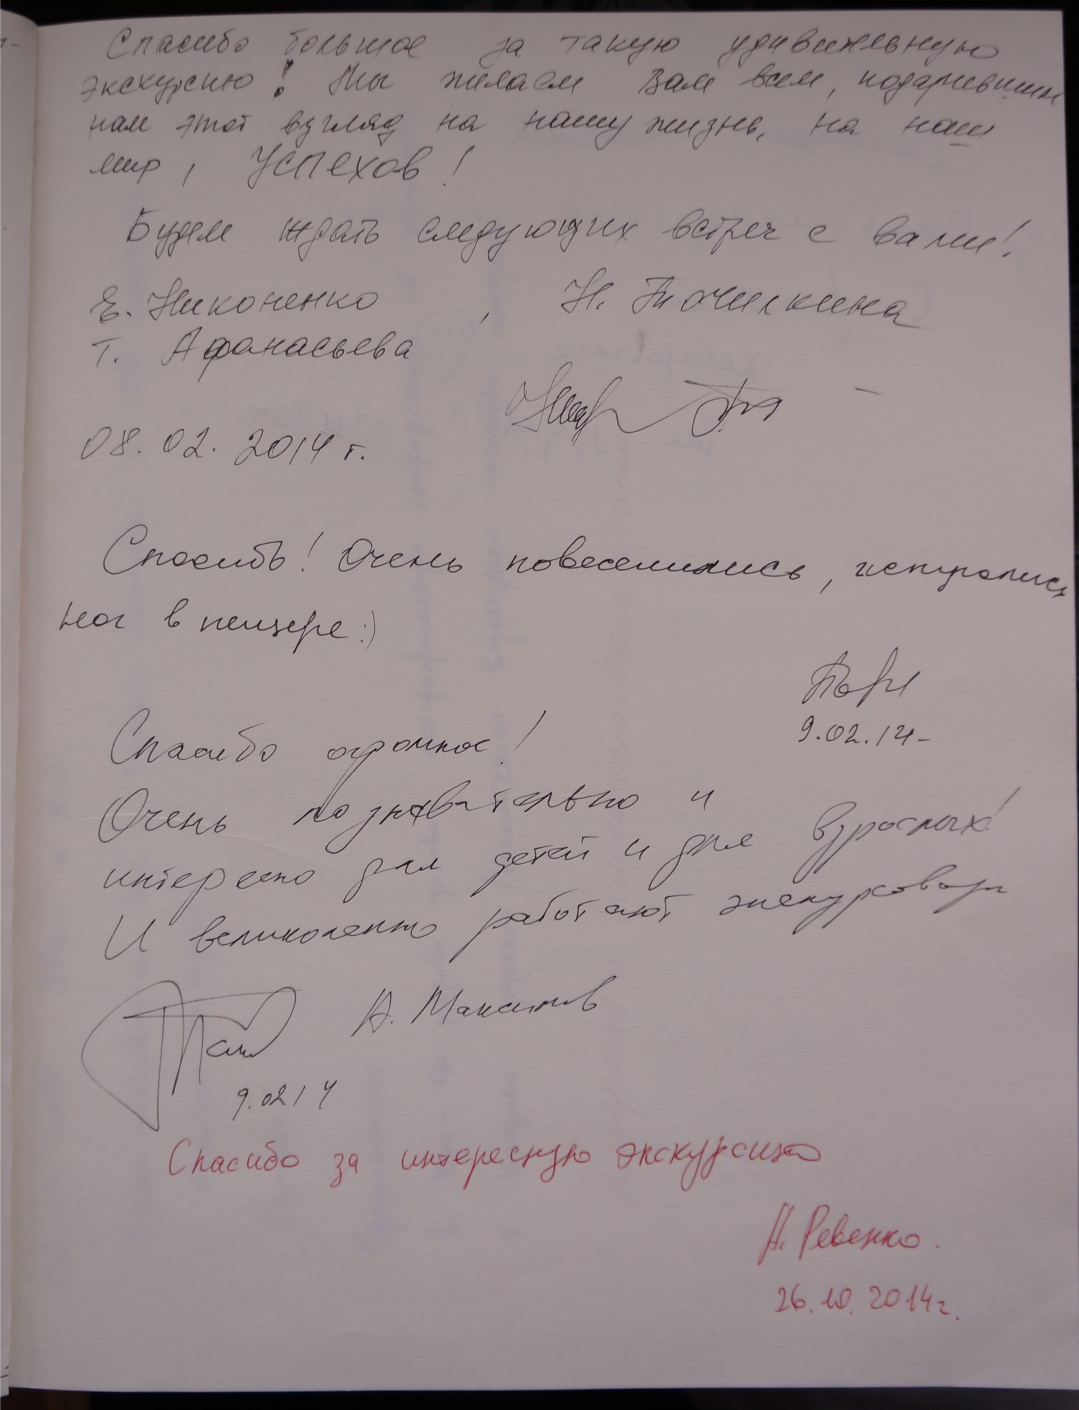 Спасибо большое за такую удивительную
экскурсию! Мы желаем Вам всем, подарившим
нам этот взгляд на нашу жизнь, на наш
мир, УСПЕХОВ!
Будем ждать следующих встреч с вами!
Е. Никоненко, Н. Точилкина
Т. Афанасьева
08.02.2014 г.
Спасибо! Очень повеселились,
ног в пещере :)
9.02.14
Спасибо огромное!
Очень познавательно и
интересно для детей и для взрослых!
И великолепно работают экскурсоводы
А. Максимов
9.02.14
Спасибо за интересную экскурсию
А. Ревенко.
26.10.2014г.